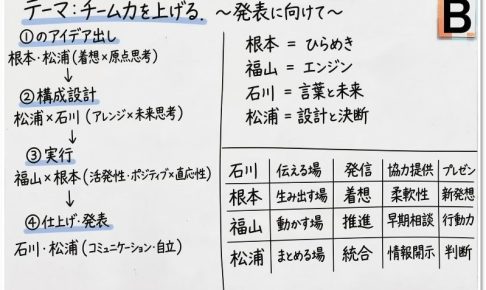 テーマ:チーム力を上げる. ～発表に向けて～
B
①のアイデア出し
根本・松浦(着想×原点思考)
↓
②構成設計
松浦×石川(アレンジ×未来思考)
↓
③実行
福山×根本(活発性・ポジティブ×適応性)
↓
④仕上げ・発表
石川・松浦(コミュニケーション・自立)
根本 = ひらめき
福山 = エンジン
石川 = 言葉と未来
松浦 = 設計と決断
石川 伝える場 発信 協力提供 プレゼン
根本 生み出す場 着想 柔軟性 新発想
福山 動かす場 推進 早期相談 行動力
松浦 まとめる場 統合 情報開示 判断